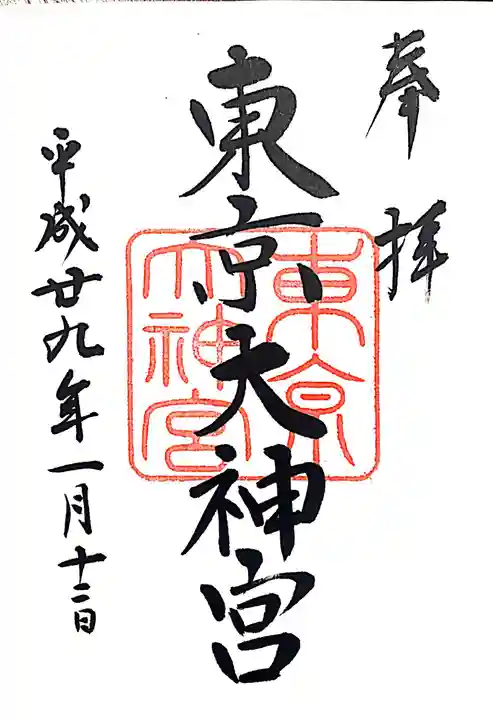 奉拝
東京天神宮
東京
大神宮
平成廿九年一月十二日